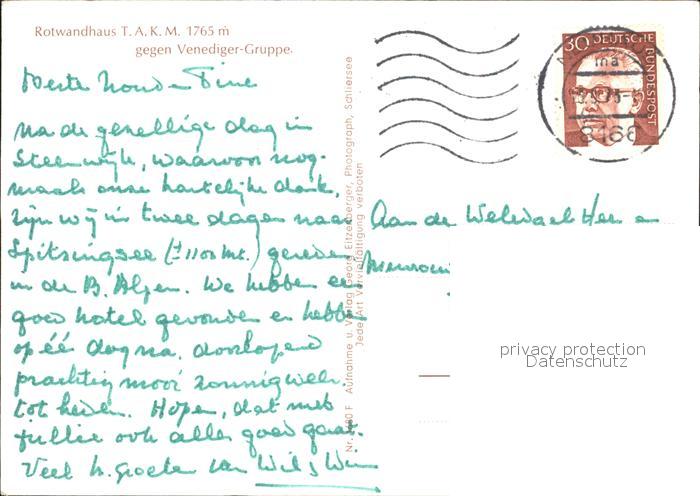 Rotwandhaus T. A. K. M. 1765 m
gegen Venediger-Gruppe.
Beste
Na de gezellige dag in
Steenwijk, waarvoor nog-
maals onze hartelijke dank,
zijn wij in twee dagen naar
Spitzingsee (± 1100 mt.) gereden
in de B. Alpen. We hebben een
goed hotel gevonden en hebben
op één dag na, doorlopend
prachtig mooi zonnig weer,
tot heden. Hopen, dat met
jullie ook alles goed gaat.
Veel h. Groeten van Wil & Wim
Nr. F Aufnahme u. Verlag Georg Eitzenberger, Photograph, Schliersee
Jede Art Vervielfältigung verboten
30 DEUTSCHE BUNDESPOST
8166
Aan de Weledele Heer en
Mevrouw
privacy protection
Datenschutz